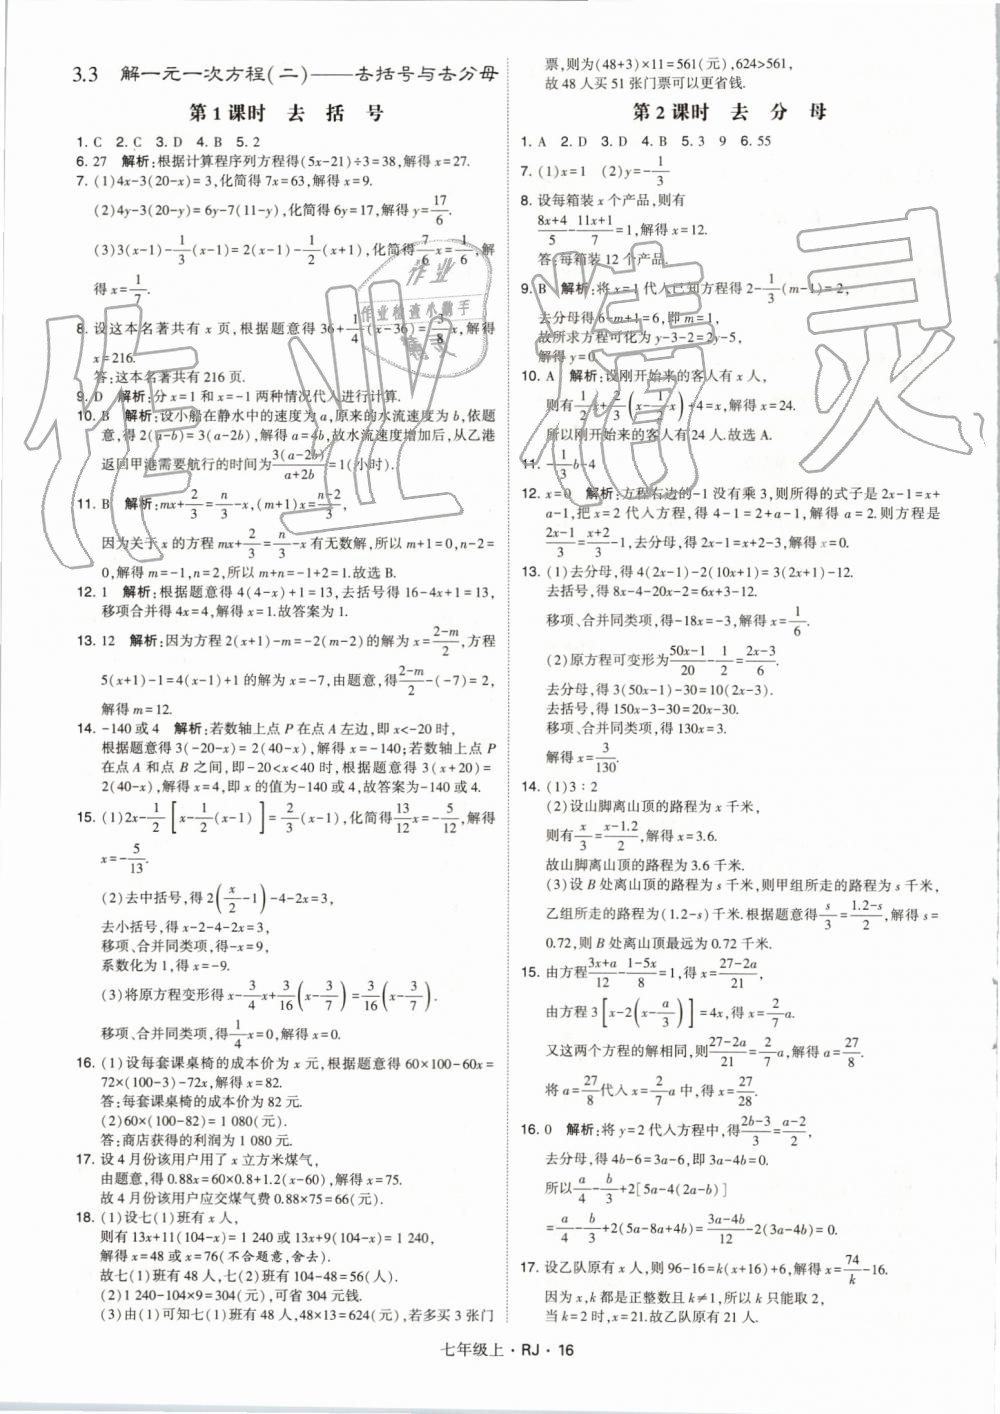 3.3 解一元一次方程(二)——去括号与去分母
第1课时 去 括 号
1. C 2. C 3. D 4. B 5. 2
6. 27 解析:根据计算程序列方程得(5x-21)÷3=38,解得x=27.
7. (1)4x-3(20-x)=3,化简得7x=63,解得x=9.
(2)4y-3(20-y)=6y-7(11-y),化简得6y=17,解得y=17/6.
(3)3(x-1)-1/3(x-1)=2(x-1)-1/2(x+1),化简得7/6x=1/6,解
得x=1/7.
8. 设这本名著共有x页,根据题意得36+1/4(x-36)=3/8x,解得
x=216.
答:这本名著共有216页.
9. D 解析:分x=1和x=-1两种情况代入进行计算.
10. B 解析:设小船在静水中的速度为a,原来的水流速度为b,依题
意,得2(a-b)=3(a-2b),解得a=4b,故水流速度增加后,从乙港
返回甲港需要航行的时间为3(a-2b)/a+2b=1(小时).
11. B 解析:mx+2/3=n/3-x,(m+1)x=n-2/3,
因为关于x的方程mx+2/3=n/3-x有无数解,所以m+1=0,n-2=
0,解得m=-1,n=2,所以m+n=-1+2=1.故选B.
12. 1 解析:根据题意得4(4-x)+1=13,去括号得16-4x+1=13,
移项合并得4x=4,解得x=1.故答案为1.
13. 12 解析:因为方程2(x+1)-m=-2(m-2)的解为x=2-m/2,方程
5(x+1)-1=4(x-1)+1的解为x=-7,由题意,得2-m/2-(-7)=2,
解得m=12.
14. -140或4 解析:若数轴上点P在点A左边,即x<-20时,
根据题意得3(-20-x)=2(40-x),解得x=-140;若数轴上点P
在点A和点B之间,即-20<x<40时,根据题意得3(x+20)=
2(40-x),解得x=4,即x的值为-140或4,故答案为-140或4.
15. (1)2x-1/2[x-1/2(x-1)]=2/3(x-1),化简得13/12x=-5/12,解得
x=-5/13.
(2)去中括号,得2(x/2-1)-4-2x=3,
去小括号,得x-2-4-2x=3,
移项、合并同类项,得-x=9,
系数化为1,得x=-9.
(3)将原方程变形得x-3/4x+3/16(x-3/7)=3/16(x-3/7).
移项、合并同类项,得1/4x=0,解得x=0.
16. (1)设每套课桌椅的成本价为x元,根据题意得60×100-60x=
72×(100-3)-72x,解得x=82.
答:每套课桌椅的成本价为82元.
(2)60×(100-82)=1 080(元).
答:商店获得的利润为1 080元.
17. 设4月份该用户用了x立方米煤气,
由题意,得0.88x=60×0.8+1.2(x-60),解得x=75.
故4月份该用户应交煤气费0.88×75=66(元).
18. (1)设七(1)班有x人,
则有13x+11(104-x)=1 240或13x+9(104-x)=1 240,
解得x=48或x=76(不合题意,舍去).
故七(1)班有48人,七(2)班有104-48=56(人).
(2)1 240-104×9=304(元),可省304元钱.
(3)由(1)可知七(1)班有48人,48×13=624(元),若多买3张门
票,则有(48+3)×11=561(元),624>561,
故48人买51张门票可以更省钱.
第2课时 去 分 母
1. A 2. D 3. D 4. B 5. 3 9 6. 55
7. (1)x=1 (2)y=-1/3
8. 设每箱装x个产品,则有
8x+4/5-11x+1/7=1,解得x=12.
答:每箱装12个产品.
9. B 解析:将x=1代入已知方程得2-1/3(m-1)=2,
去分母得6-m+1=6,即m=1,
故所求方程可化为y-3-2=2y-5,
解得y=0.
10. A 解析:设刚开始来的客人有x人,
则有1/3x+2/3(x-1/3x)+4=x,解得x=24.
所以刚开始来的客人有24人.故选A.
11. -1/3b-4
12. x=0 解析:方程右边的-1没有乘3,则所得的式子是2x-1=x+
a-1,把x=2代入方程,得4-1=2+a-1,解得a=2.则方程是
2x-1/3=x+2/3-1,去分母,得2x-1=x+2-3,解得x=0.
13. (1)去分母,得4(2x-1)-2(10x+1)=3(2x+1)-12.
去括号,得8x-4-20x-2=6x+3-12.
移项、合并同类项,得-18x=-3,解得x=1/6.
(2)原方程可变形为50x-1/20-1/2=2x-3/6.
去分母,得3(50x-1)-30=10(2x-3).
去括号,得150x-3-30=20x-30.
移项、合并同类项,得130x=3.
解得x=3/130.
14. (1)3∶2
(2)设山脚离山顶的路程为x千米,
则有x/3=x-1.2/2,解得x=3.6.
故山脚离山顶的路程为3.6千米.
(3)设B处离山顶的路程为s千米,则甲组所走的路程为s千米,
乙组所走的路程为(1.2-s)千米.根据题意得s/3=1.2-s/2,解得s=
0.72,则B处离山顶最远为0.72千米.
15. 由方程3x+a/12-1-5x/8=1,得x=27-2a/21,
由方程3[x-2(x-a/3)]=4x,得x=2/7a.
又这两个方程的解相同,则27-2a/21=2/7a,解得a=27/8.
将a=27/8代入x=2/7a中,得x=27/28.
16. 0 解析:将y=2代入方程中,得2b-3/3=a-2/2,
去分母,得4b-6=3a-6,即3a=4b.
所以a/4-b/3+2[5a-4(2a-b)]
=a/4-b/3+2(5a-8a+4b)=3a-4b/12-2(3a-4b)=0.
17. 设乙队原有x人,则96-16=k(x+16)+6,解得x=74/k-16.
因为x,k都是正整数且k≠1,所以k只能取2,
当k=2时,x=21.故乙队原有21人.
七年级上·RJ·16
作业精灵
作业
作业检查小助手